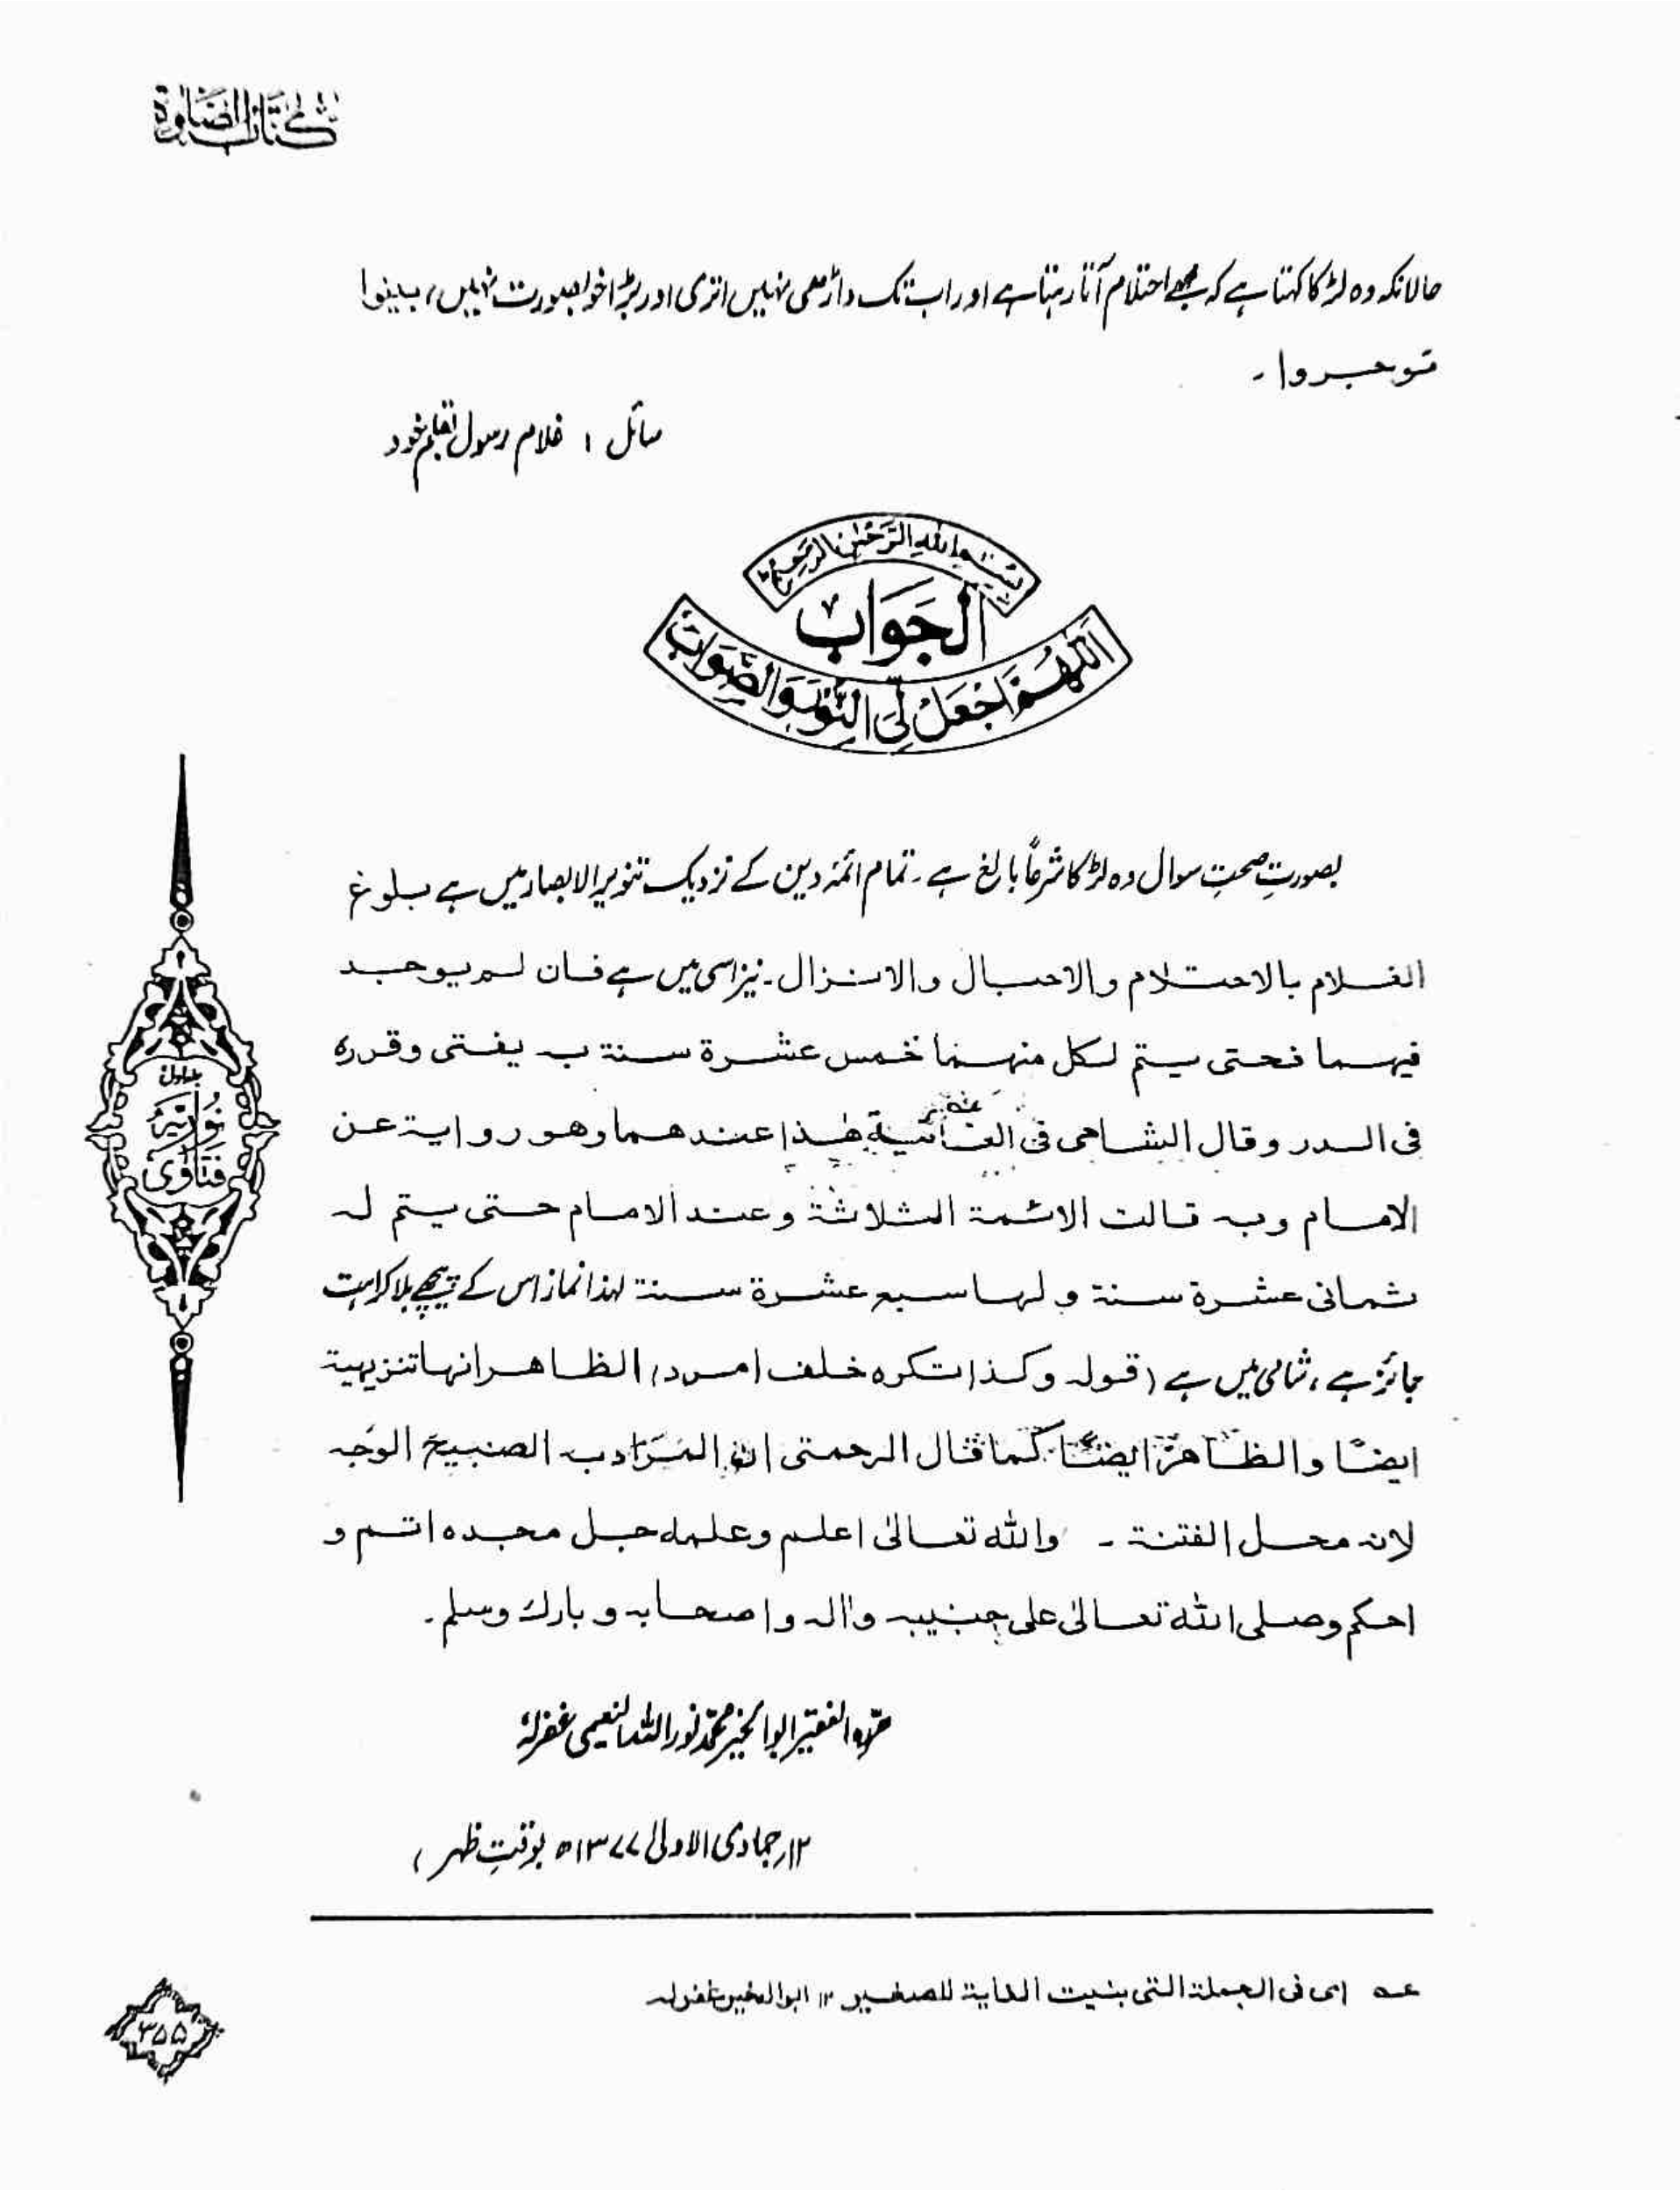 كتاب الصلوة
حالانکہ وہ لڑکا کہتا ہے کہ مجھے احتلام آتا رہتا ہے اور اب تک داڑھی نہیں اتری اور بڑا خوبصورت نہیں، بينوا
توجروا۔
سائل : غلام رسول بقلم خود
بسم الله الرحمن الرحيم
الجواب
اللهم اجعل لي النور والصواب
بصورتِ صحتِ سوال وہ لڑکا شرعاً بالغ ہے۔ تمام ائمۂ دین کے نزدیک تنویر الابصار میں ہے بلوغ
الغلام بالاحتلام والاحبال والانزال۔ نیز اسی میں ہے فان لم يوجد
فيهما فحتى يتم لكل منهما خمس عشرة سنة به يفتى وقرره
فی الدر وقال الشامی فی هٰذا عندهما وهو رواية عن
الامام وبه قالت الائمة الثلاثة وعند الامام حتى يتم له
ثمانی عشرة سنة ولها سبع عشرة سنة لہذا نماز اس کے پیچھے بلا کراہت
جائز ہے، شامی میں ہے (قوله وكذا تكره خلف امرد) الظاهر انها تنزيهية
ايضًا والظاهر ايضًا كما قال الرحمتی ان المراد به الصبيح الوجه
لانه محل الفتنة ۔ والله تعالىٰ اعلم وعلمه جل مجده اتم و
احكم وصلى الله تعالىٰ على حبيبه واٰله واصحابه وبارك وسلم۔
حرّرہ الفقیر ابو الخیر محمد نور اللہ النعیمی غفرلہٗ
۱۲؍ جمادی الاولیٰ ۱۳۷۷ھ بوقتِ ظہر،
جلد اول
نوریہ
فتاوىٰ
عه ای فی الجملة التی بنيت الغاية للصغير ۱۲ ابو الخير غفرله
۳۵۵